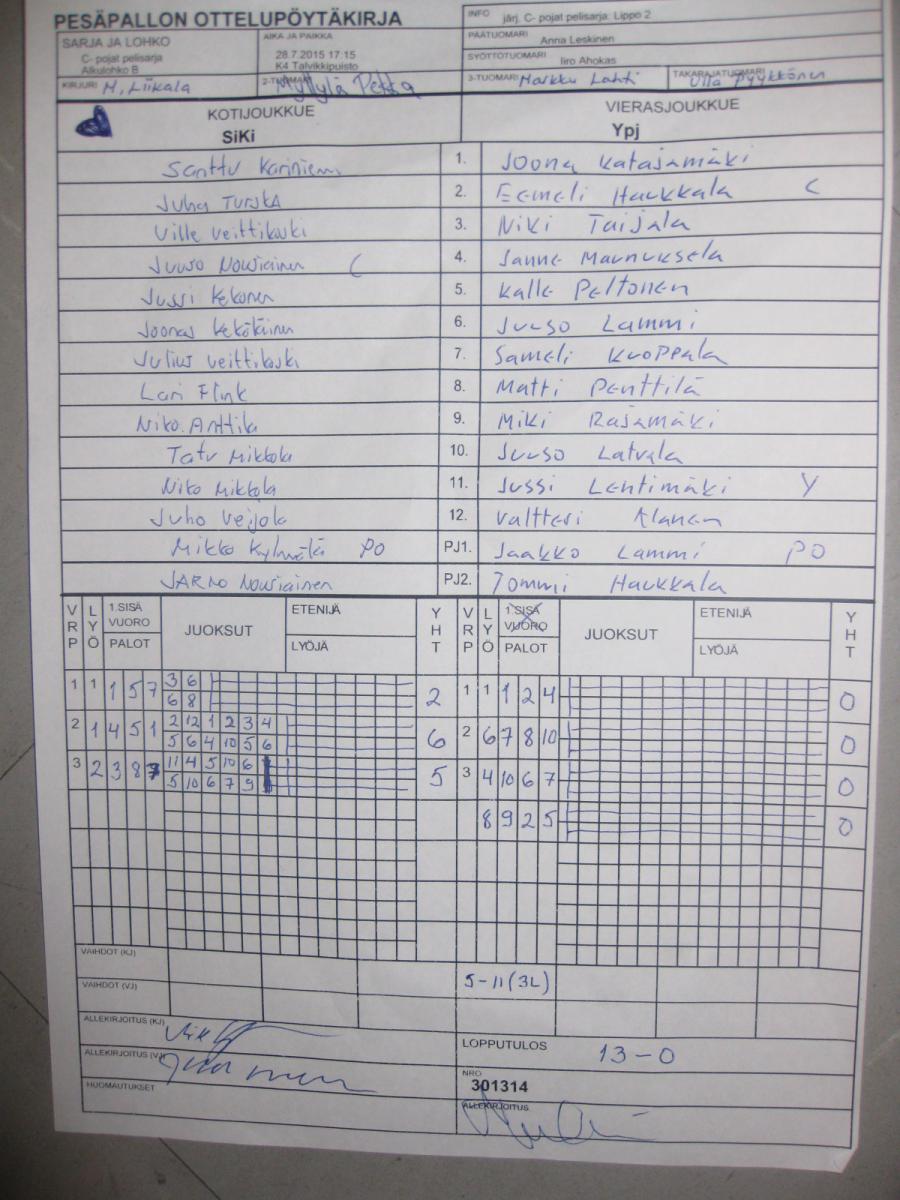 PESÄPALLON OTTELUPÖYTÄKIRJA
INFO järj. C- pojat pelisarja: Lippo 2
SARJA JA LOHKO
C- pojat pelisarja
Alkulohko B
AIKA JA PAIKKA
28.7.2015 17:15
K4 Talvikkipuisto
PÄÄTUOMARI Anna Leskinen
SYÖTTÖTUOMARI Iiro Ahokas
KIRJURI M, Liikala
2-TUOMARI Myllylä Pekka
3-TUOMARI Markku Lahti
TAKARAJATUOMARI Ulla Pyykkönen
KOTIJOUKKUE
SiKi
VIERASJOUKKUE
Ypj
Santtu Kariniemi 1. Joona Katajamäki
Juha Turska 2. Eemeli Haukkala C
Ville Veittikoski 3. Niki Taijala
Juuso Nousiainen C 4. Janne Maunuksela
Jussi Kekonen 5. Kalle Peltonen
Joonas 6. Juuso Lammi
Julius Veittikoski 7. Sameli Kuoppala
Lari Flink 8. Matti Penttilä
Niko Anttila 9. Miki Rajamäki
Tatu Mikkola 10. Juuso Latvala
Niko Mikkola 11. Jussi Lehtimäki Y
Juho Veijola 12. Valtteri Alanen
Mikko PO PJ1. Jaakko Lammi PO
JARNO Nousiainen PJ2. Tommi Haukkala
VRP LYÖ 1.SISÄ VUORO PALOT JUOKSUT ETENIJÄ LYÖJÄ YHT VRP LYÖ 1.SISÄ VUORO PALOT JUOKSUT ETENIJÄ LYÖJÄ YHT
1 1 1 5 7 3 6 2 1 1 1 2 4 0
6 8
2 1 4 5 1 2 12 1 2 3 4 6 2 6 7 8 10 0
5 6 4 10 5 6
3 2 3 8 7 11 4 5 10 6 5 3 4 10 6 7 0
5 10 6 7 9
8 9 2 5 0
VAIHDOT (KJ)
VAIHDOT (VJ) 5-11 (3L)
ALLEKIRJOITUS (KJ)
ALLEKIRJOITUS (VJ)
LOPPUTULOS 13-0
HUOMAUTUKSET
NRO
301314
ALLEKIRJOITUS